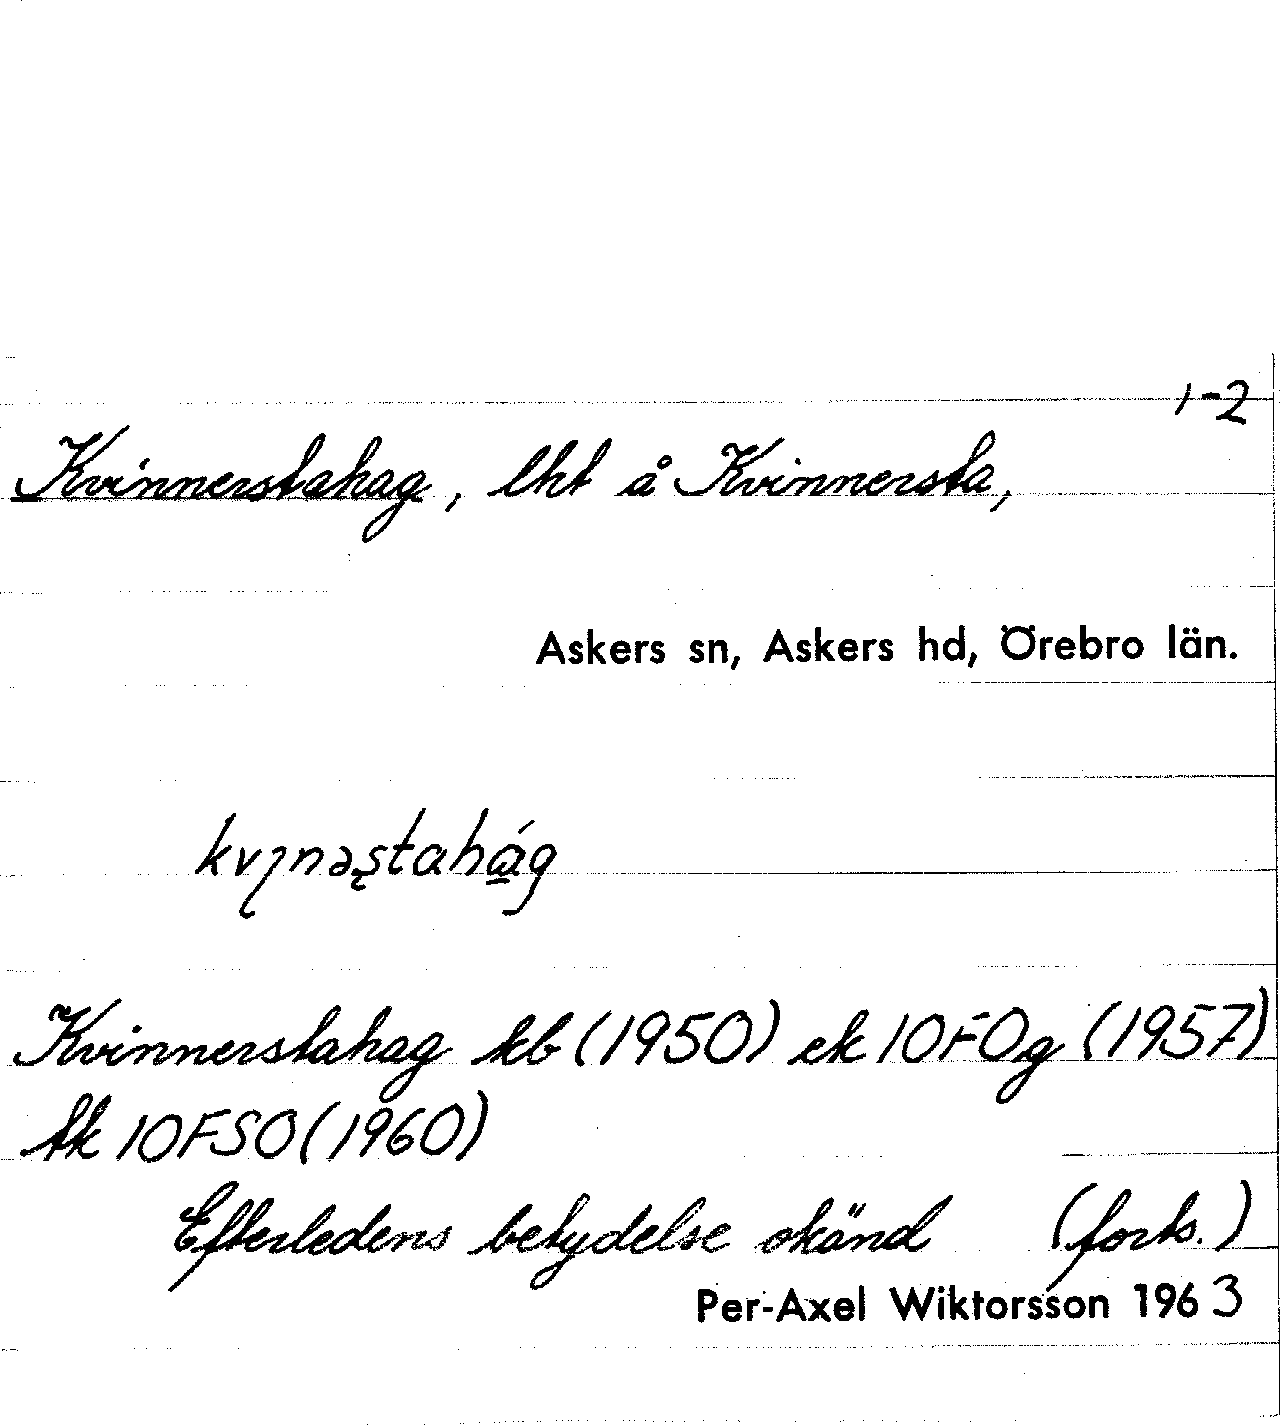 1-2
Kvinnerstahag, lht å Kvinnersta,
Askers sn, Askers hd, Örebro län.
Kvinnerstahag kb (1950) ek 10FOg (1957)
tk 10FSO (1960)
Efterledens betydelse okänd (forts.)
Per-Axel Wiktorsson 1963